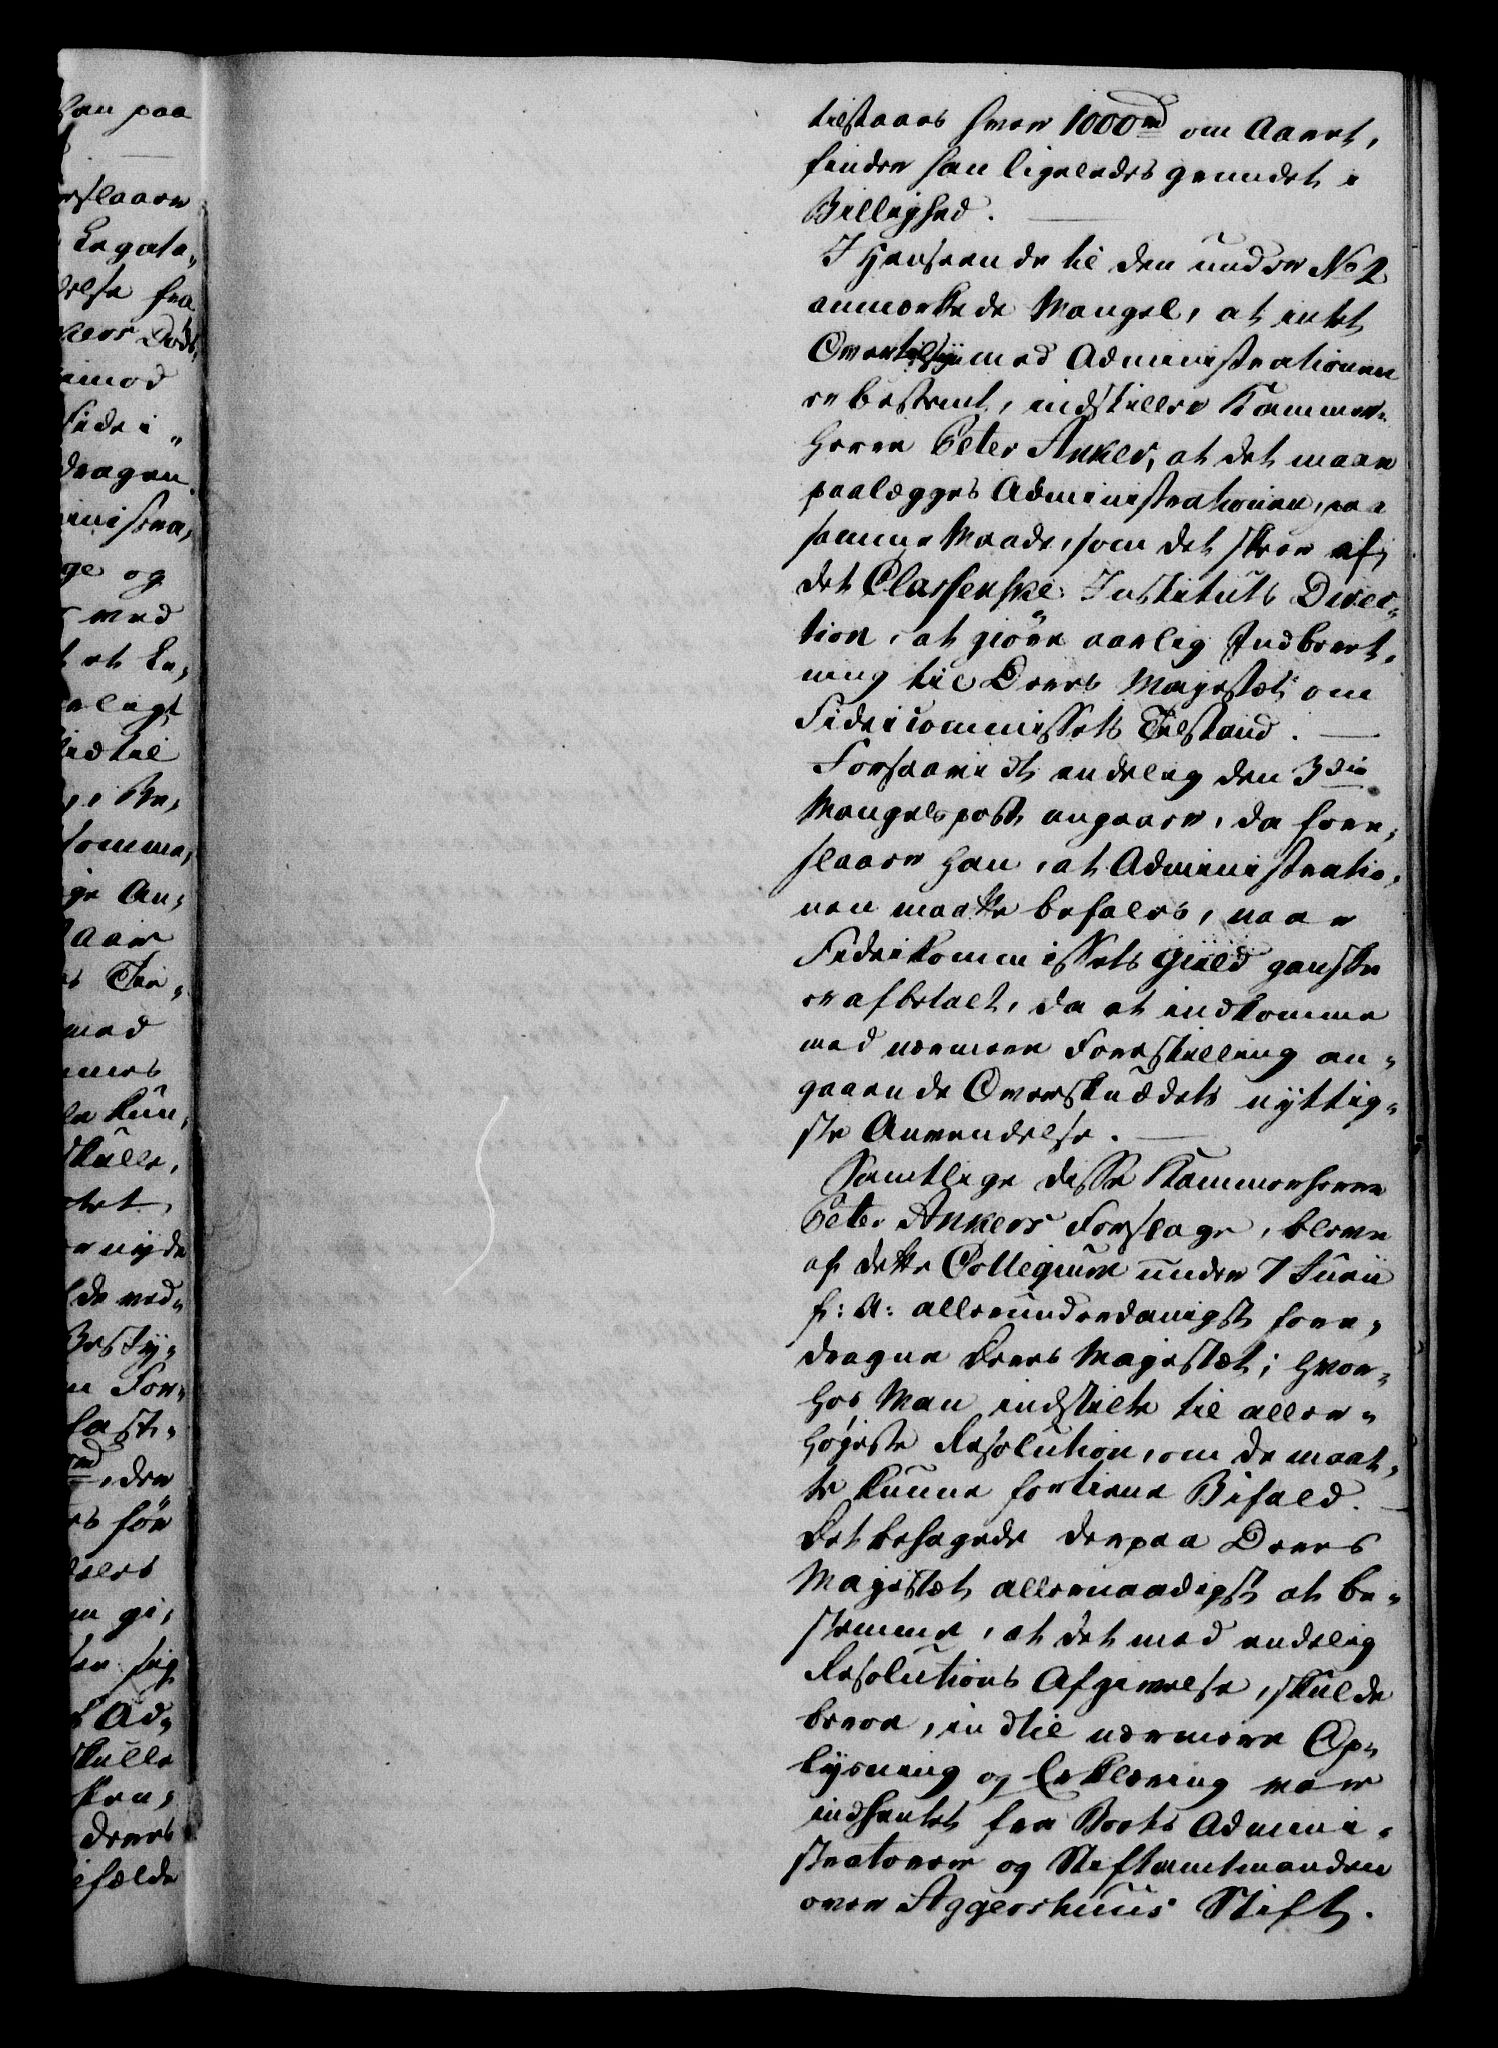 han paa
rslaaer
Legata„
delse fra
kers Døds„
imod
Fidei„
dragen
inistra„
ge og
med
t et Le„
eligt
til
Be„
komme„
ge An„
aar
Ter„
med
mmes
kun„
skulle,
tet,
nyde
de ved„
Besty„
n For„
fast„
rd, der
før
deles
gi„
sig
Ad„
skulle
ken„
deres
ifælde
tilstaaes hver 1000 rd om Aaret,
finder han ligeledes grundet i
Billighed. —
I Henseende til den under No 2
anmærkede Mangel, at intet
Overtilsyn med Administrationen
er bestemt, indstiller Kammer„
Herre Peter Anker, at det maae
paalægges Administrationen, paa
samme Maade, som det skeer af
det Classenske Instituts Direc„
tion, at giøre aarlig Indberet„
ning til Deres Majestæt om
Fideicommissets Tilstand. —
Forsaavidt endelig den 3die
Mangels post angaaer, da fore„
slaaer Han, at Administratio„
nen maatte befales, naar
Fideikommissets Giæld ganske
er afbetalt, da at indkomme
med nærmere Forestilling an„
gaaende Overskuddets nyttig„
ste Anvendelse. —
Samtlige disse Kammerherre
Peter Ankers Forslage, bleve
af dette Collegium under 7 Junii
f: A: allerunderdanigst fore„
dragne Deres Majestæt; hvor„
hos Man indstilte til aller„
høyeste Resolution, om de maat„
te kunne fortiene Bifald. —
Det behagede derpaa Deres
Majestæt allernaadigst at be„
stemme, at det med endelig
Resolutions Afgivelse, skulde
beroe, indtil nærmere Op„
lysning og Erklæring var
indhentet fra Boets Admini„
stratorer og Stiftamtmanden
over Aggershuus Stift.